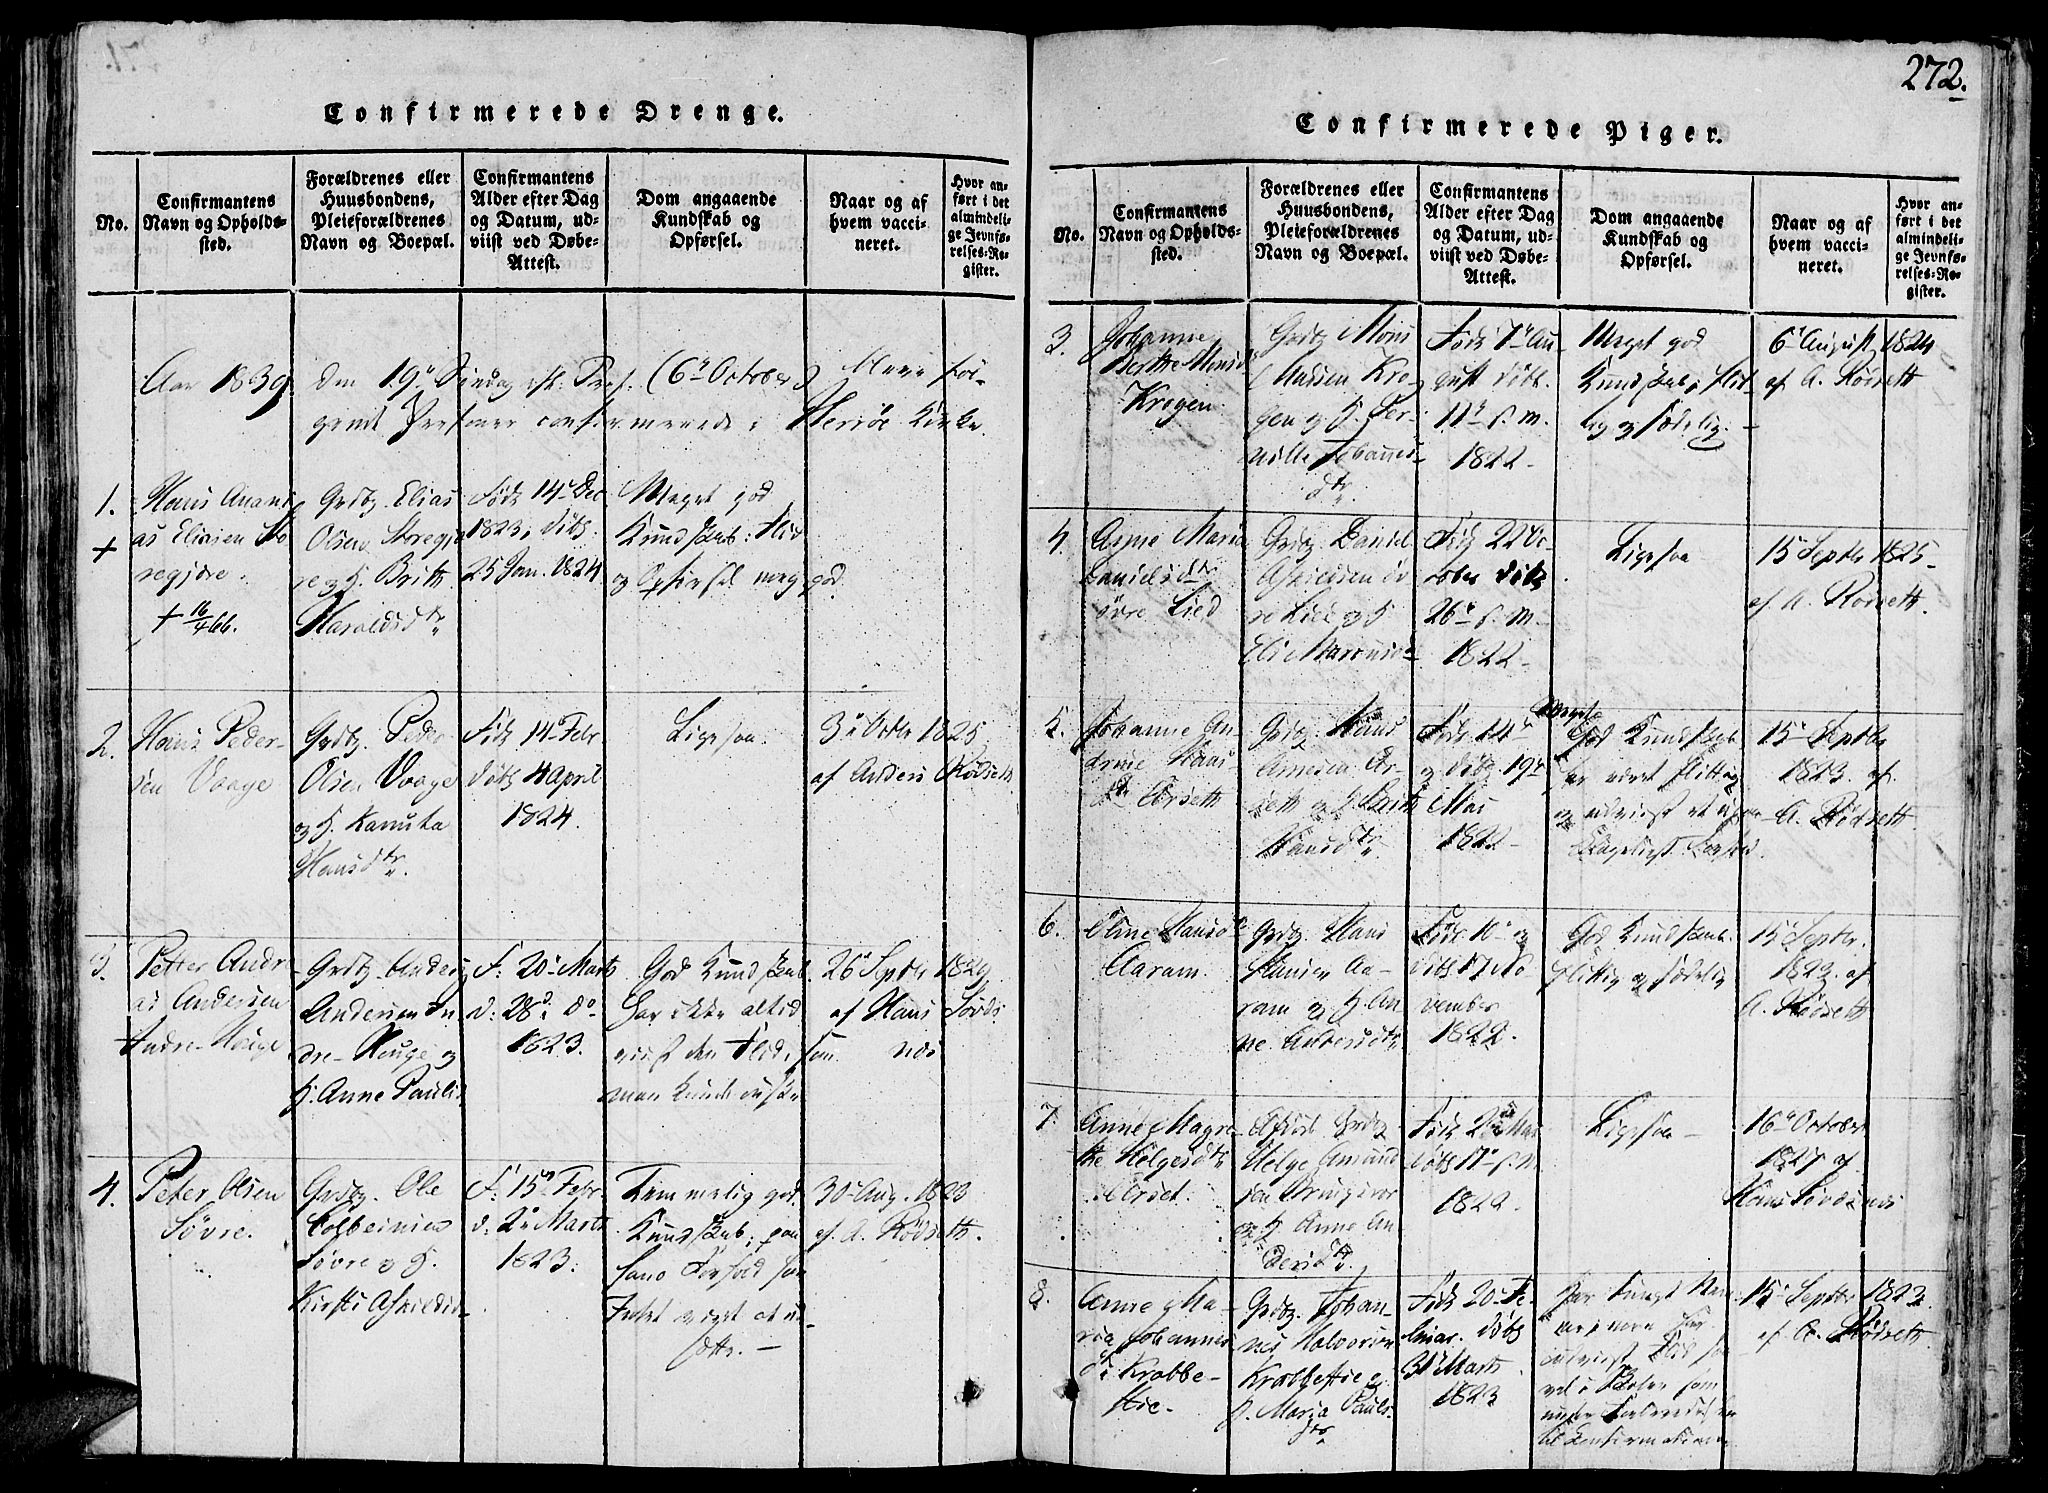 272.
Confirmerede Drenge.
No.
Confirmantens
Navn og Opholds-
sted.
Forældrenes eller
Huusbondens,
Pleieforældrenes
Navn og Boepæl.
Confirmantens
Alder efter Dag
og Datum, ud-
viist ved Døbe-
Attest.
Dom angaaende
Kundskab og
Opførsel.
Naar og af
hvem vacci-
neret.
Hvor an-
ført i det
almindeli-
ge Jevnfø-
relses-Re-
gister.
Aar 1839. den 19de Søndag (6te October)
Personer confirmerede i Herrøe Kirke.
1.
+
Hans Anani-
as Eliasen Sto
regjøre.
+ 16/4 66.
Grdbr. Elias
Olsen Storegjø
re og H. Brith
Haroldsdtr
Født 14de Dec
1823, døbt
25 Jan. 1824
Meget god
Kundskab; Flid
og Opførsel meg. god.
2.
Hans Peder-
sen Vaage
Grdbr. Peder
Olsen Vaage
og H. Kanuta
Hansdtr
Født 14de Febr
døbt 4 April
1824.
Ligesaa.
3de Octbr 1825
af Anders Rødseth
3.
Petter Andre-
as Andersen
Indre-Houge
Grdbr Anders
Andersen In-
dre-Houge og
H. Anne Pauls.
F. 20de Marts
d. 28de do
1823.
God Kundskab.
har ikke altid
viist den Flid, som
man kunde ønske
26de Septbr 1829
af Hans Sørds-
næs
4.
Peter Olsen
Søvre.
Grdbr. Ole
Colbeinsen
Søvre og H.
Kirsti Askildsd.
F. 15de Febr.
d. 2de Marts
1823.
Temmelig god
Kundskab; paa
hans Forhold har
Intet viist at ud-
sætte. —
30de Aug. 1823
af A. Rødseth.
Confirmerede Piger.
No.
Confirmantens
Navn og Opholds-
sted.
Forældrenes eller
Huusbondens,
Pleieforældrenes
Navn og Boepæl.
Confirmantens
Alder efter Dag
og Datum, ud-
viist ved Døbe-
Attest.
Dom angaaende
Kundskab og
Opførsel.
Naar og af
hvem vacci-
neret.
Hvor an-
ført i det
almindeli-
ge Jevnfø-
relses-Re-
gister.
3.
Johanne
Berthe Monsd
Krogen
Grdbr Mons
Madsen Kro-
gen og H. Per-
nille Johannes-
dtr.
Født 1de Au-
gust døbt.
11de s. M.
1822-
Meget god
Kundskab, flit-
tig og sædelig.-
6te August 1824
af A. Rødseth
4
Anne Maria
Danielsdtr
øvre Lied
Grdbr. Daniel
Askildsen øv-
re Lied og H
Eli
Født 22 Oc-
tober døbt
26de s. M-
1822-
Ligesaa
15 Septbr 1825-
af A. Rødseth.
5.
Johanne An-
drine Hans-
dtr Aarseth
Grdbr. Hans
Arnesen Aar-
seth og H. Brith
Hansdtr.
Født 14de
og døbt 19de
Mai
1822-
Meget
God Kundskab
har været flittig
og udviist et upaa-
klageligt Forhold.
15de Septbr
1823. af
A. Rødseth.
6.
Oline Hansdtr
Aaram.
Grdbr. Hans
Hansen Aa-
ram og H. An-
ne Andersdtr
Født 10de og
døbt 17 No-
vember
1822.
God Kundskab.
flittig og sædelig
15de Septbr.
1823. af
A. Rødseth
7.
Anne Magre-
the Helgesdtr
Aarset.
Afdøde Grdbr
Helge Amund-
sen
og H Anne An-
dersdtr
Født 2den Mai
døbt 17de s. M.
1822.
Ligesaa -
16de October
1827 af
Hans Sørdsnæs
8.
Anne Ma-
ria Johannes
dtr Krabbe-
stie.
Grdbr. Johan-
nes Halvorsen
Krabbestie og
H. Maria Pauls-
dtr
Født 20de Fe-
bruar. døbt
31de Marts
1823
har
udviist Flid saa-
vel i Skolen som
under Forberedelsen
til Confirmationen
15de Septbr 1823
af A. Rødseth